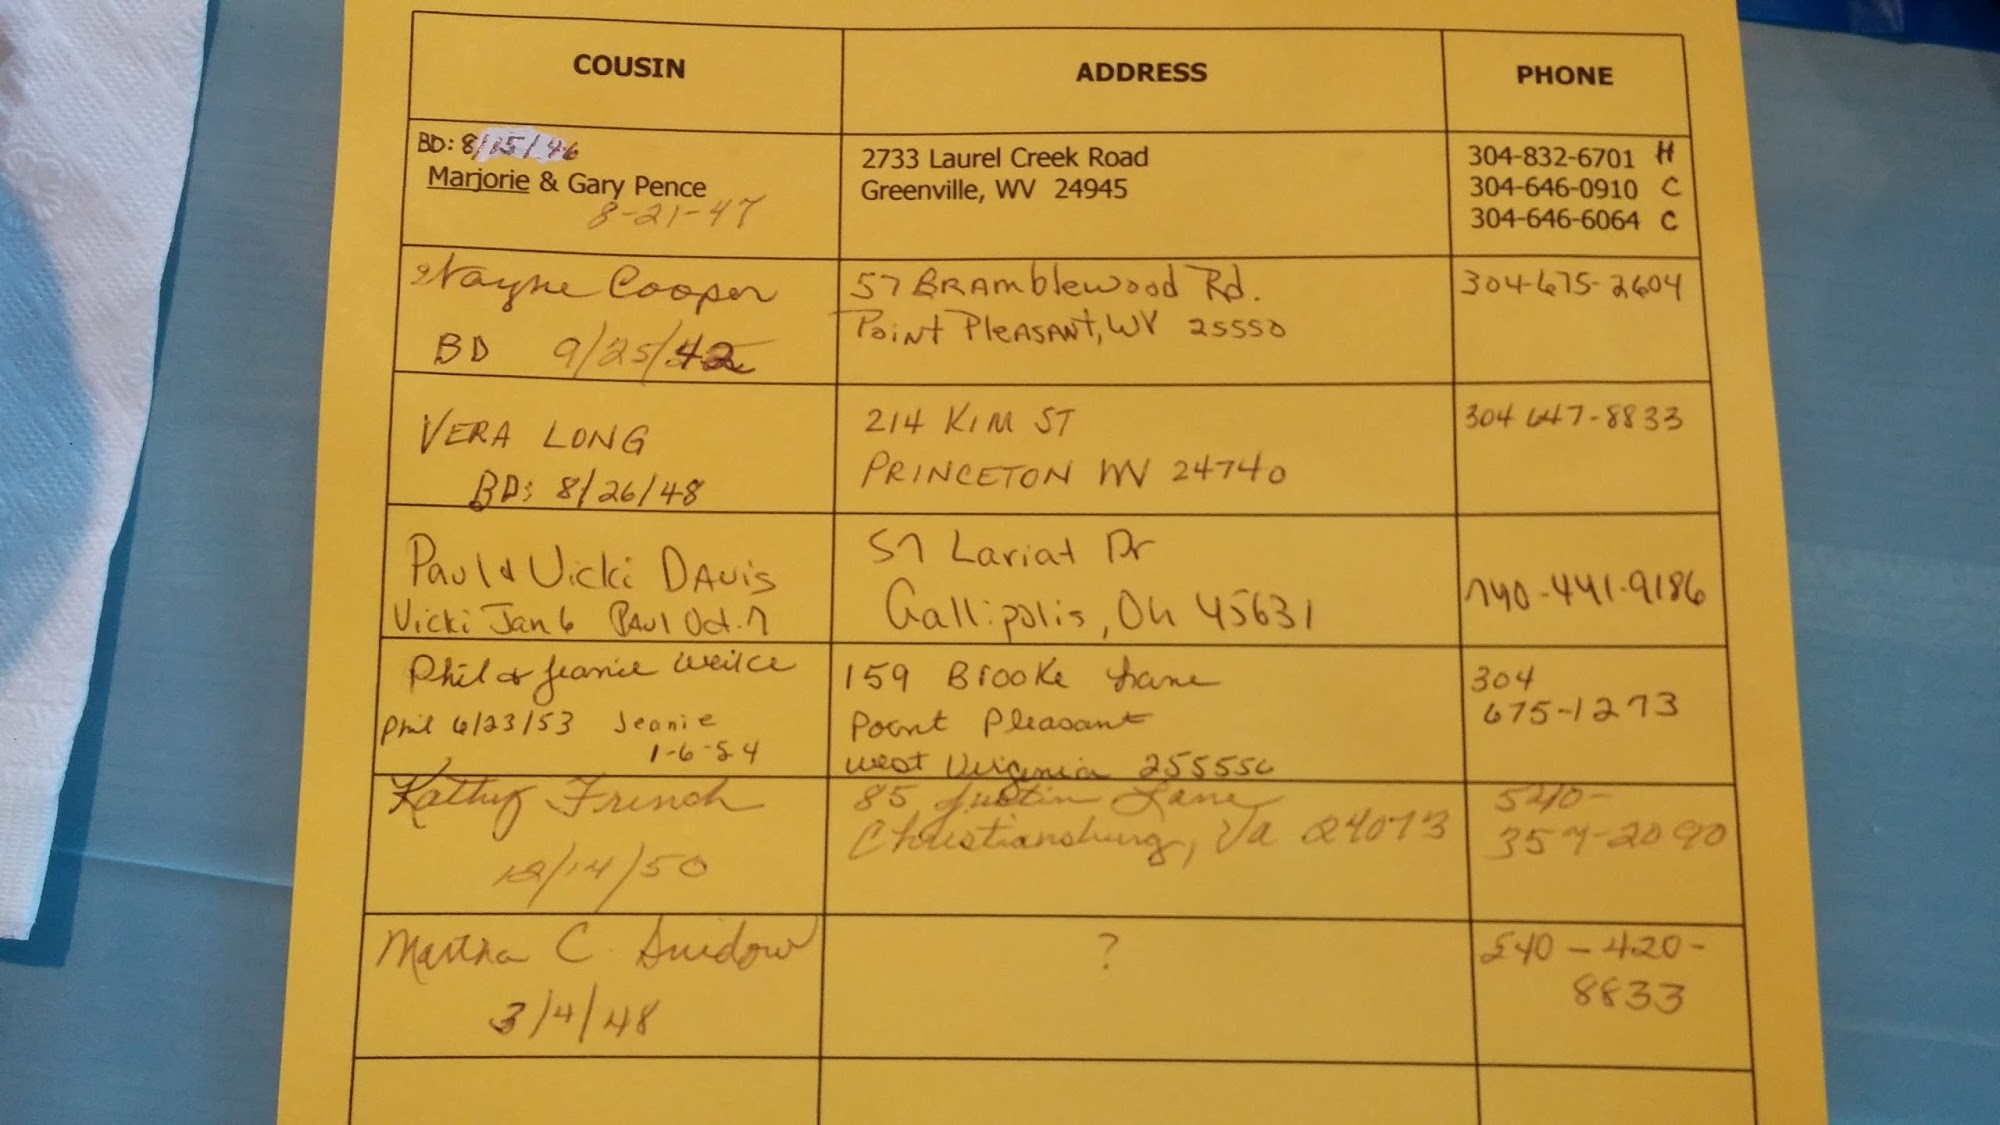 COUSIN ADDRESS PHONE
BD: 8/15/46
Marjorie & Gary Pence
8-21-47
2733 Laurel Creek Road
Greenville, WV 24945
304-832-6701 H
304-646-0910 C
304-646-6064 C
Wayne Cooper
BD 9/25/42
57 Bramblewood Rd.
Point Pleasant, WV 25550
304-675-2604
VERA LONG
BD: 8/26/48
214 KIM ST
PRINCETON WV 24740
304 647-8833
Paul & Vicki Davis
Vicki Jan 6 Paul Oct. 7
57 Lariat Dr
Gallipolis, Oh 45631
740-441-9186
Phil & Jeanie
Phil 6/23/53 Jeanie
1-6-54
159 Brooke Lane
Point Pleasant
West Virginia 255550
304
675-1273
Kathy French
12/14/50
85 Justin Lane
Christiansburg, Va 24073
540-
357-2090
Martha C. Snidow
3/4/48
?
540-420-
8833